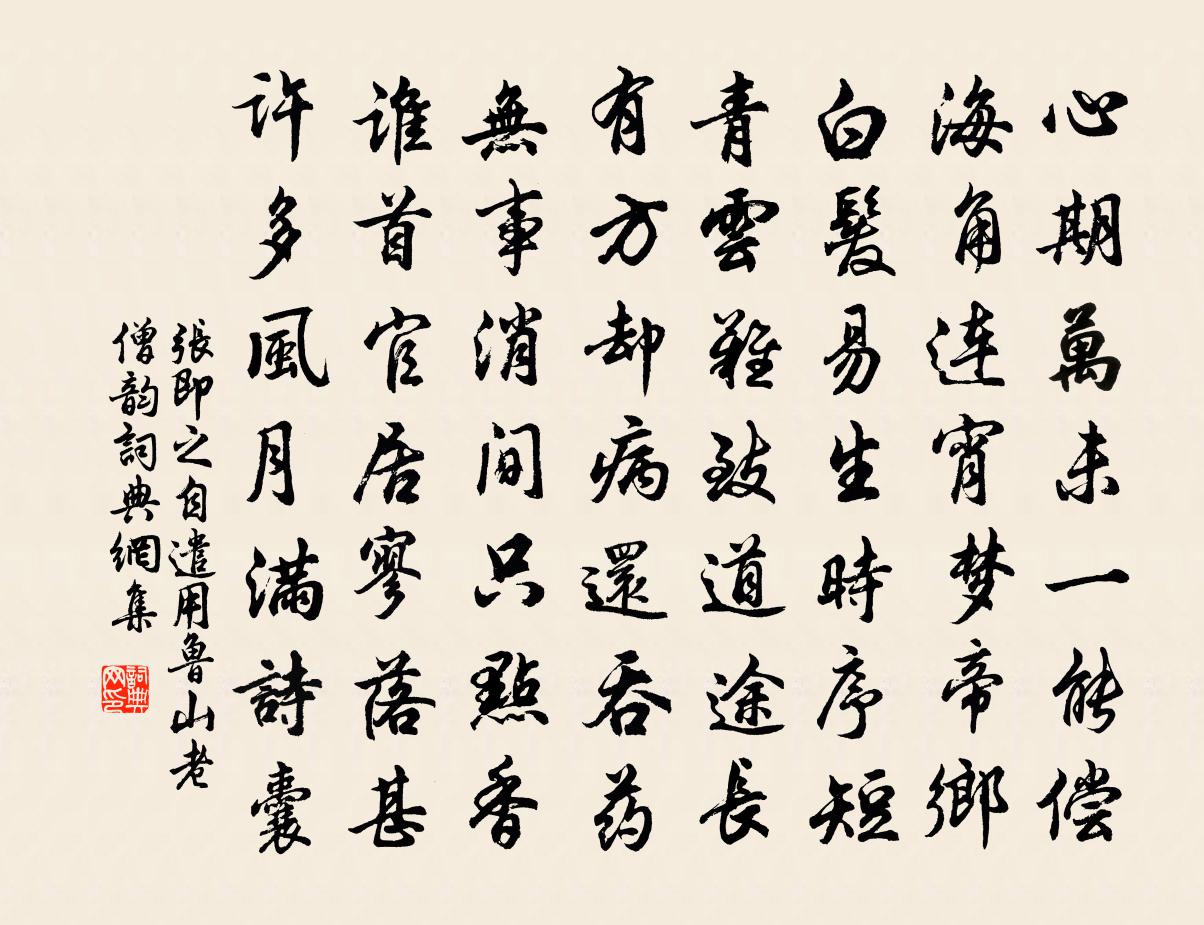 心期萬未一能偿
海角連宵梦帝鄉
白髮易生時序短
青雲難致道途長
有方却病還吞药
無事消间只點香
誰首官居寥落甚
許多風月滿詩囊
張即之自遣用魯山老
僧韵詞典網集
詞典
网印